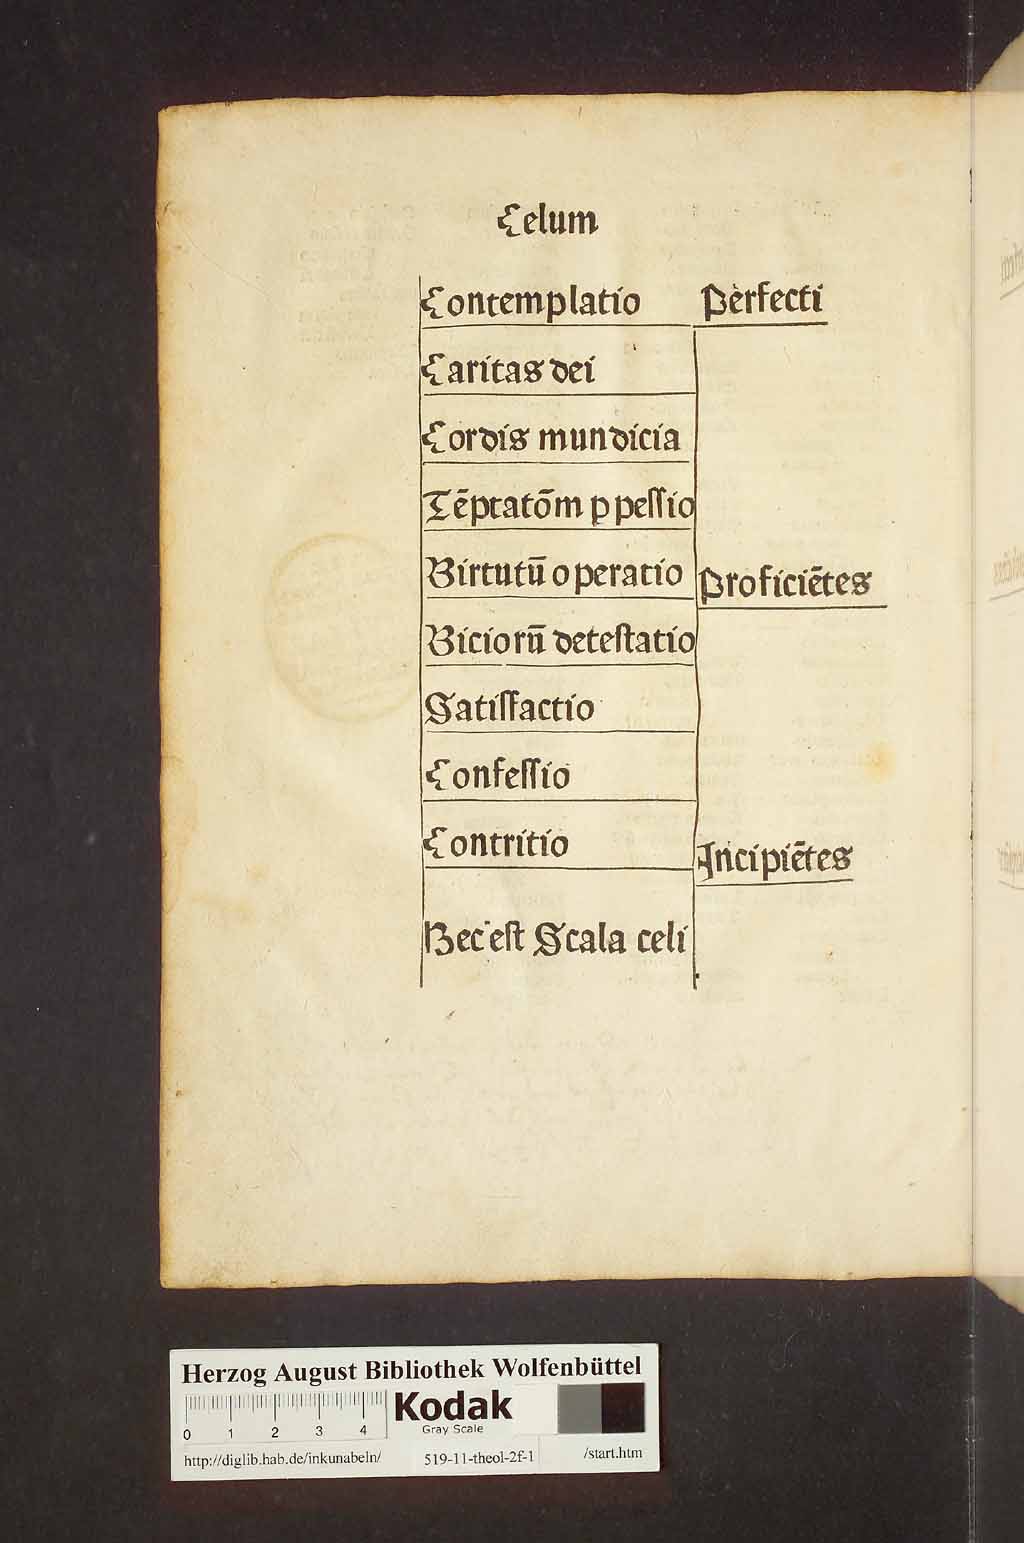 Celum
Contemplatio Perfecti
Caritas dei
Cordis mundicia
Tēptatōm ꝑpeſſio
Virtutū operatio Proficiētes
Viciorū deteſtatio
Satiſfactio
Confeſſio
Contritio Incipiētes
Hec eſt Scala celi
Herzog August Bibliothek Wolfenbüttel
0 1 2 3 4
Kodak
Gray Scale
http://diglib.hab.de/inkunabeln/ 519-11-theol-2f-1 /start.htm